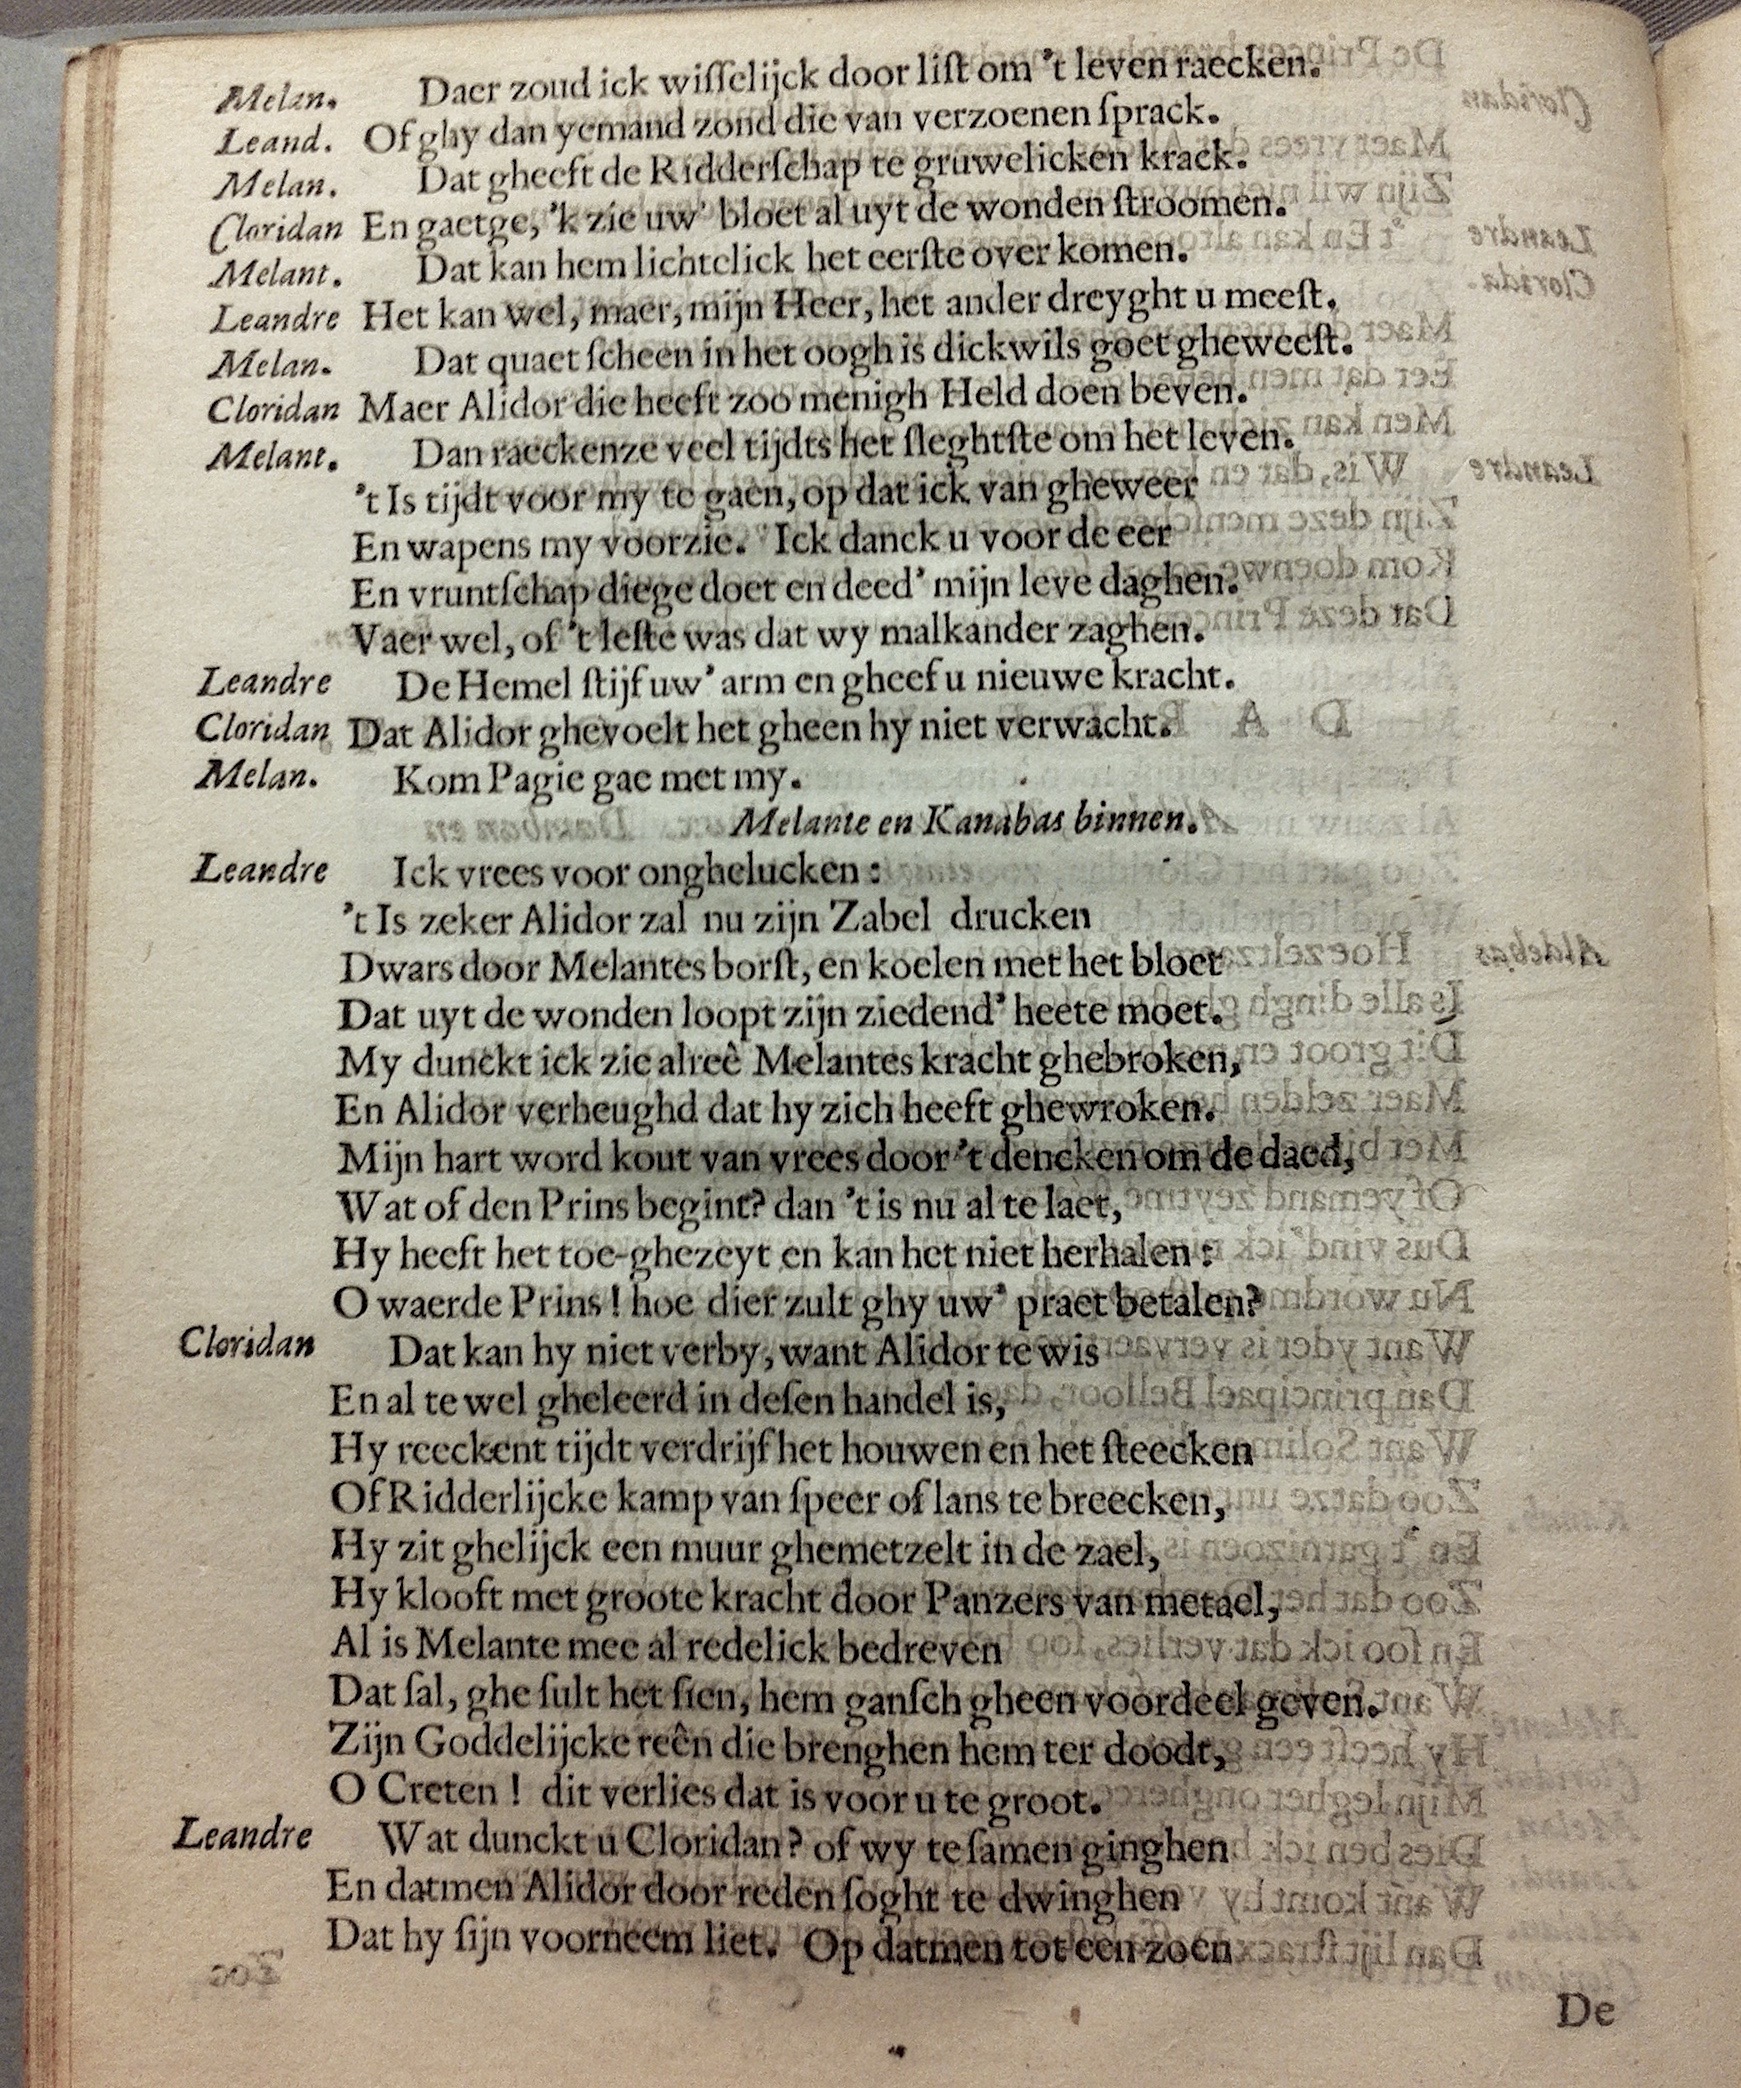 Melan. Daer zoud ick wiſſelijck door liſt om 't leven raecken.
Leand. Of ghy dan yemand zond die van verzoenen ſprack.
Melan. Dat gheeft de Ridderſchap te gruwelicken krack.
Cloridan En gaetge, 'k zie uw' bloet al uyt de wonden ſtroomen.
Melant. Dat kan hem lichtelick het eerſte over komen.
Leandre Het kan wel, maer, mijn Heer, het ander dreyght u meeſt.
Melan. Dat quaet ſcheen in het oogh is dickwils goet gheweeſt.
Cloridan Maer Alidor die heeft zoo menigh Held doen beven.
Melant. Dan raeckenze veel tijdts het ſleghtſte om het leven.
't Is tijdt voor my te gaen, op dat ick van gheweer
En wapens my voorzie. Ick danck u voor de eer
En vruntſchap diege doet en deed' mijn leve daghen.
Vaer wel, of 't leſte was dat wy malkander zaghen.
Leandre De Hemel ſtijf uw' arm en gheef u nieuwe kracht.
Cloridan Dat Alidor ghevoelt het gheen hy niet verwacht.
Melan. Kom Pagie gae met my.
Melante en Kanabas binnen.
Leandre Ick vrees voor onghelucken:
't Is zeker Alidor zal nu zijn Zabel drucken
Dwars door Melantes borſt, en koelen met het bloet
Dat uyt de wonden loopt zijn ziedend' heete moet.
My dunckt ick zie alreê Melantes kracht ghebroken,
En Alidor verheughd dat hy zich heeft ghewroken.
Mijn hart word kout van vrees door 't dencken om de daed,
Wat of den Prins begint? dan 't is nu al te laet,
Hy heeft het toe-ghezeyt en kan het niet herhalen:
O waerde Prins! hoe dier zult ghy uw' praet betalen?
Cloridan Dat kan hy niet verby, want Alidor te wis
En al te wel gheleerd in deſen handel is,
Hy reeckent tijdt verdrijf het houwen en het ſteecken
Of Ridderlijcke kamp van ſpeer of lans te breecken,
Hy zit ghelijck een muur ghemetzelt in de zael,
Hy klooft met groote kracht door Panzers van metael,
Al is Melante mee al redelick bedreven
Dat ſal, ghe ſult het ſien, hem ganſch gheen voordeel geven.
Zijn Goddelijcke reên die brenghen hem ter doodt,
O Creten! dit verlies dat is voor u te groot.
Leandre Wat dunckt u Cloridan? of wy te ſamen ginghen
En datmen Alidor door reden ſoght te dwinghen
Dat hy ſijn voorneem liet. Op datmen tot een zoen
De